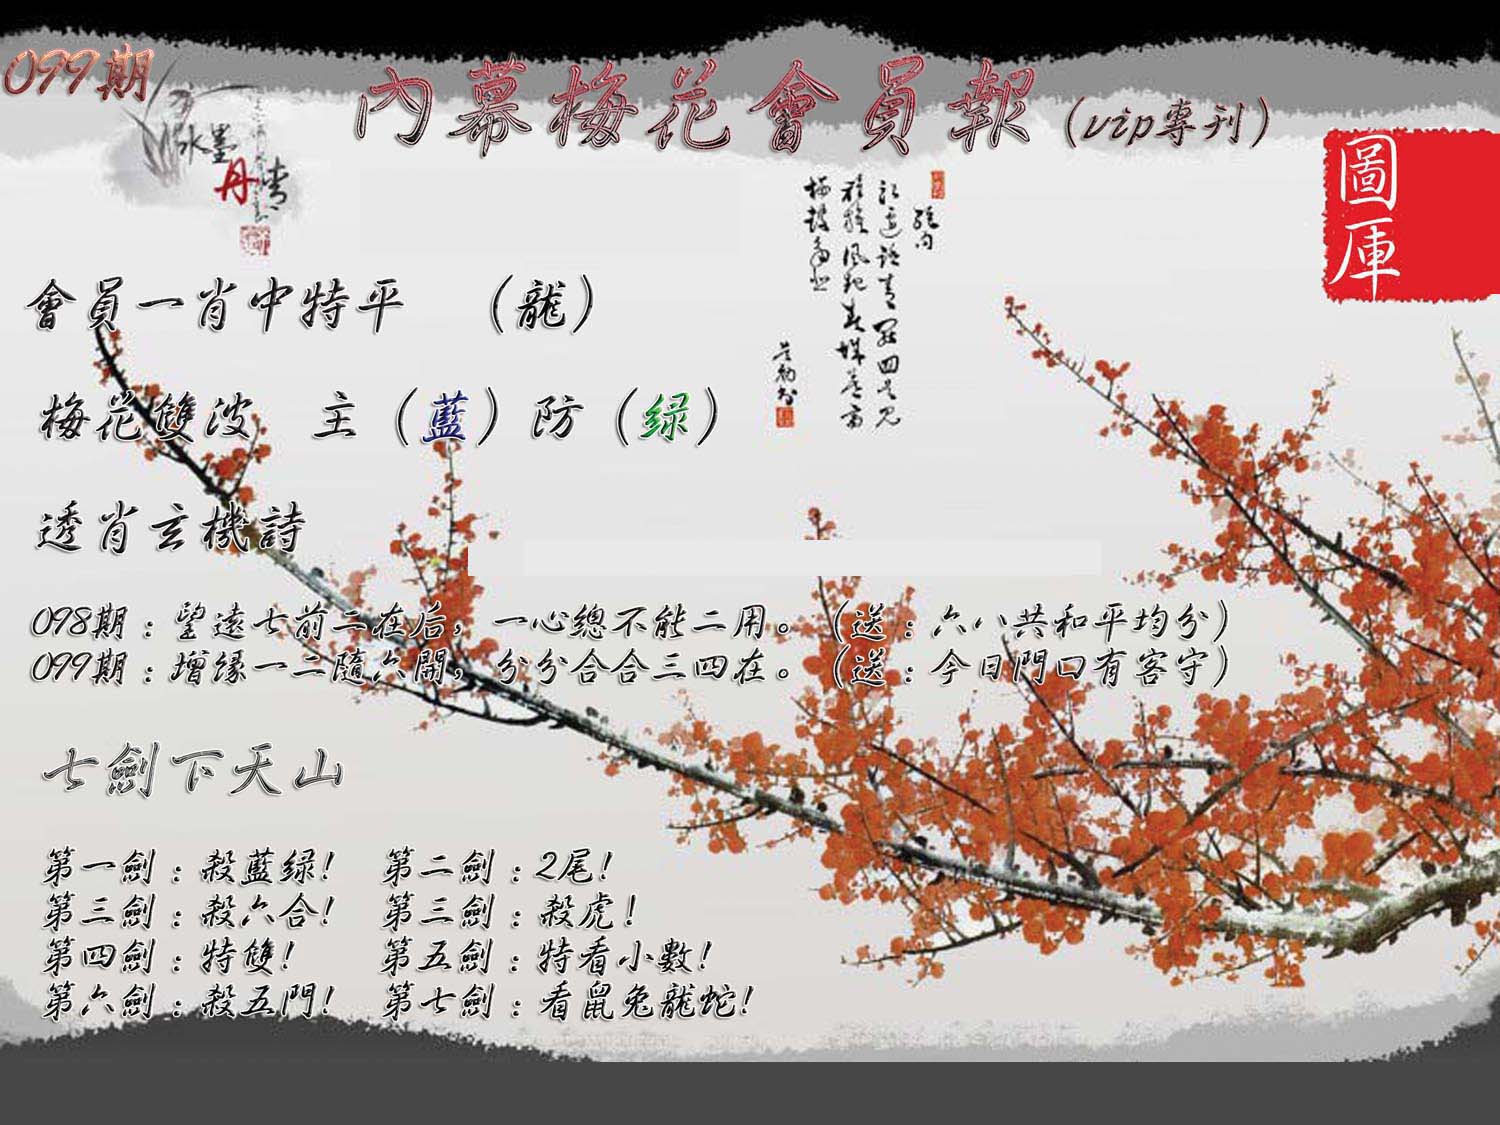 099期
內幕梅花會員報（vip專刊）
水墨
丹青
圖庫
會員一肖中特平　（龍）
梅花雙波　主（藍）防（绿）
透肖玄機詩
098期：望遠七前二在后，一心總不能二用。（送：六八共和平均分）
099期：增缘一二隨六開，分分合合三四在。（送：今日門口有客守）
七劍下天山
第一劍：殺藍绿！　第二劍：2尾！
第三劍：殺六合！　第三劍：殺虎！
第四劍：特雙！　第五劍：特看小數！
第六劍：殺五門！　第七劍：看鼠兔龍蛇！